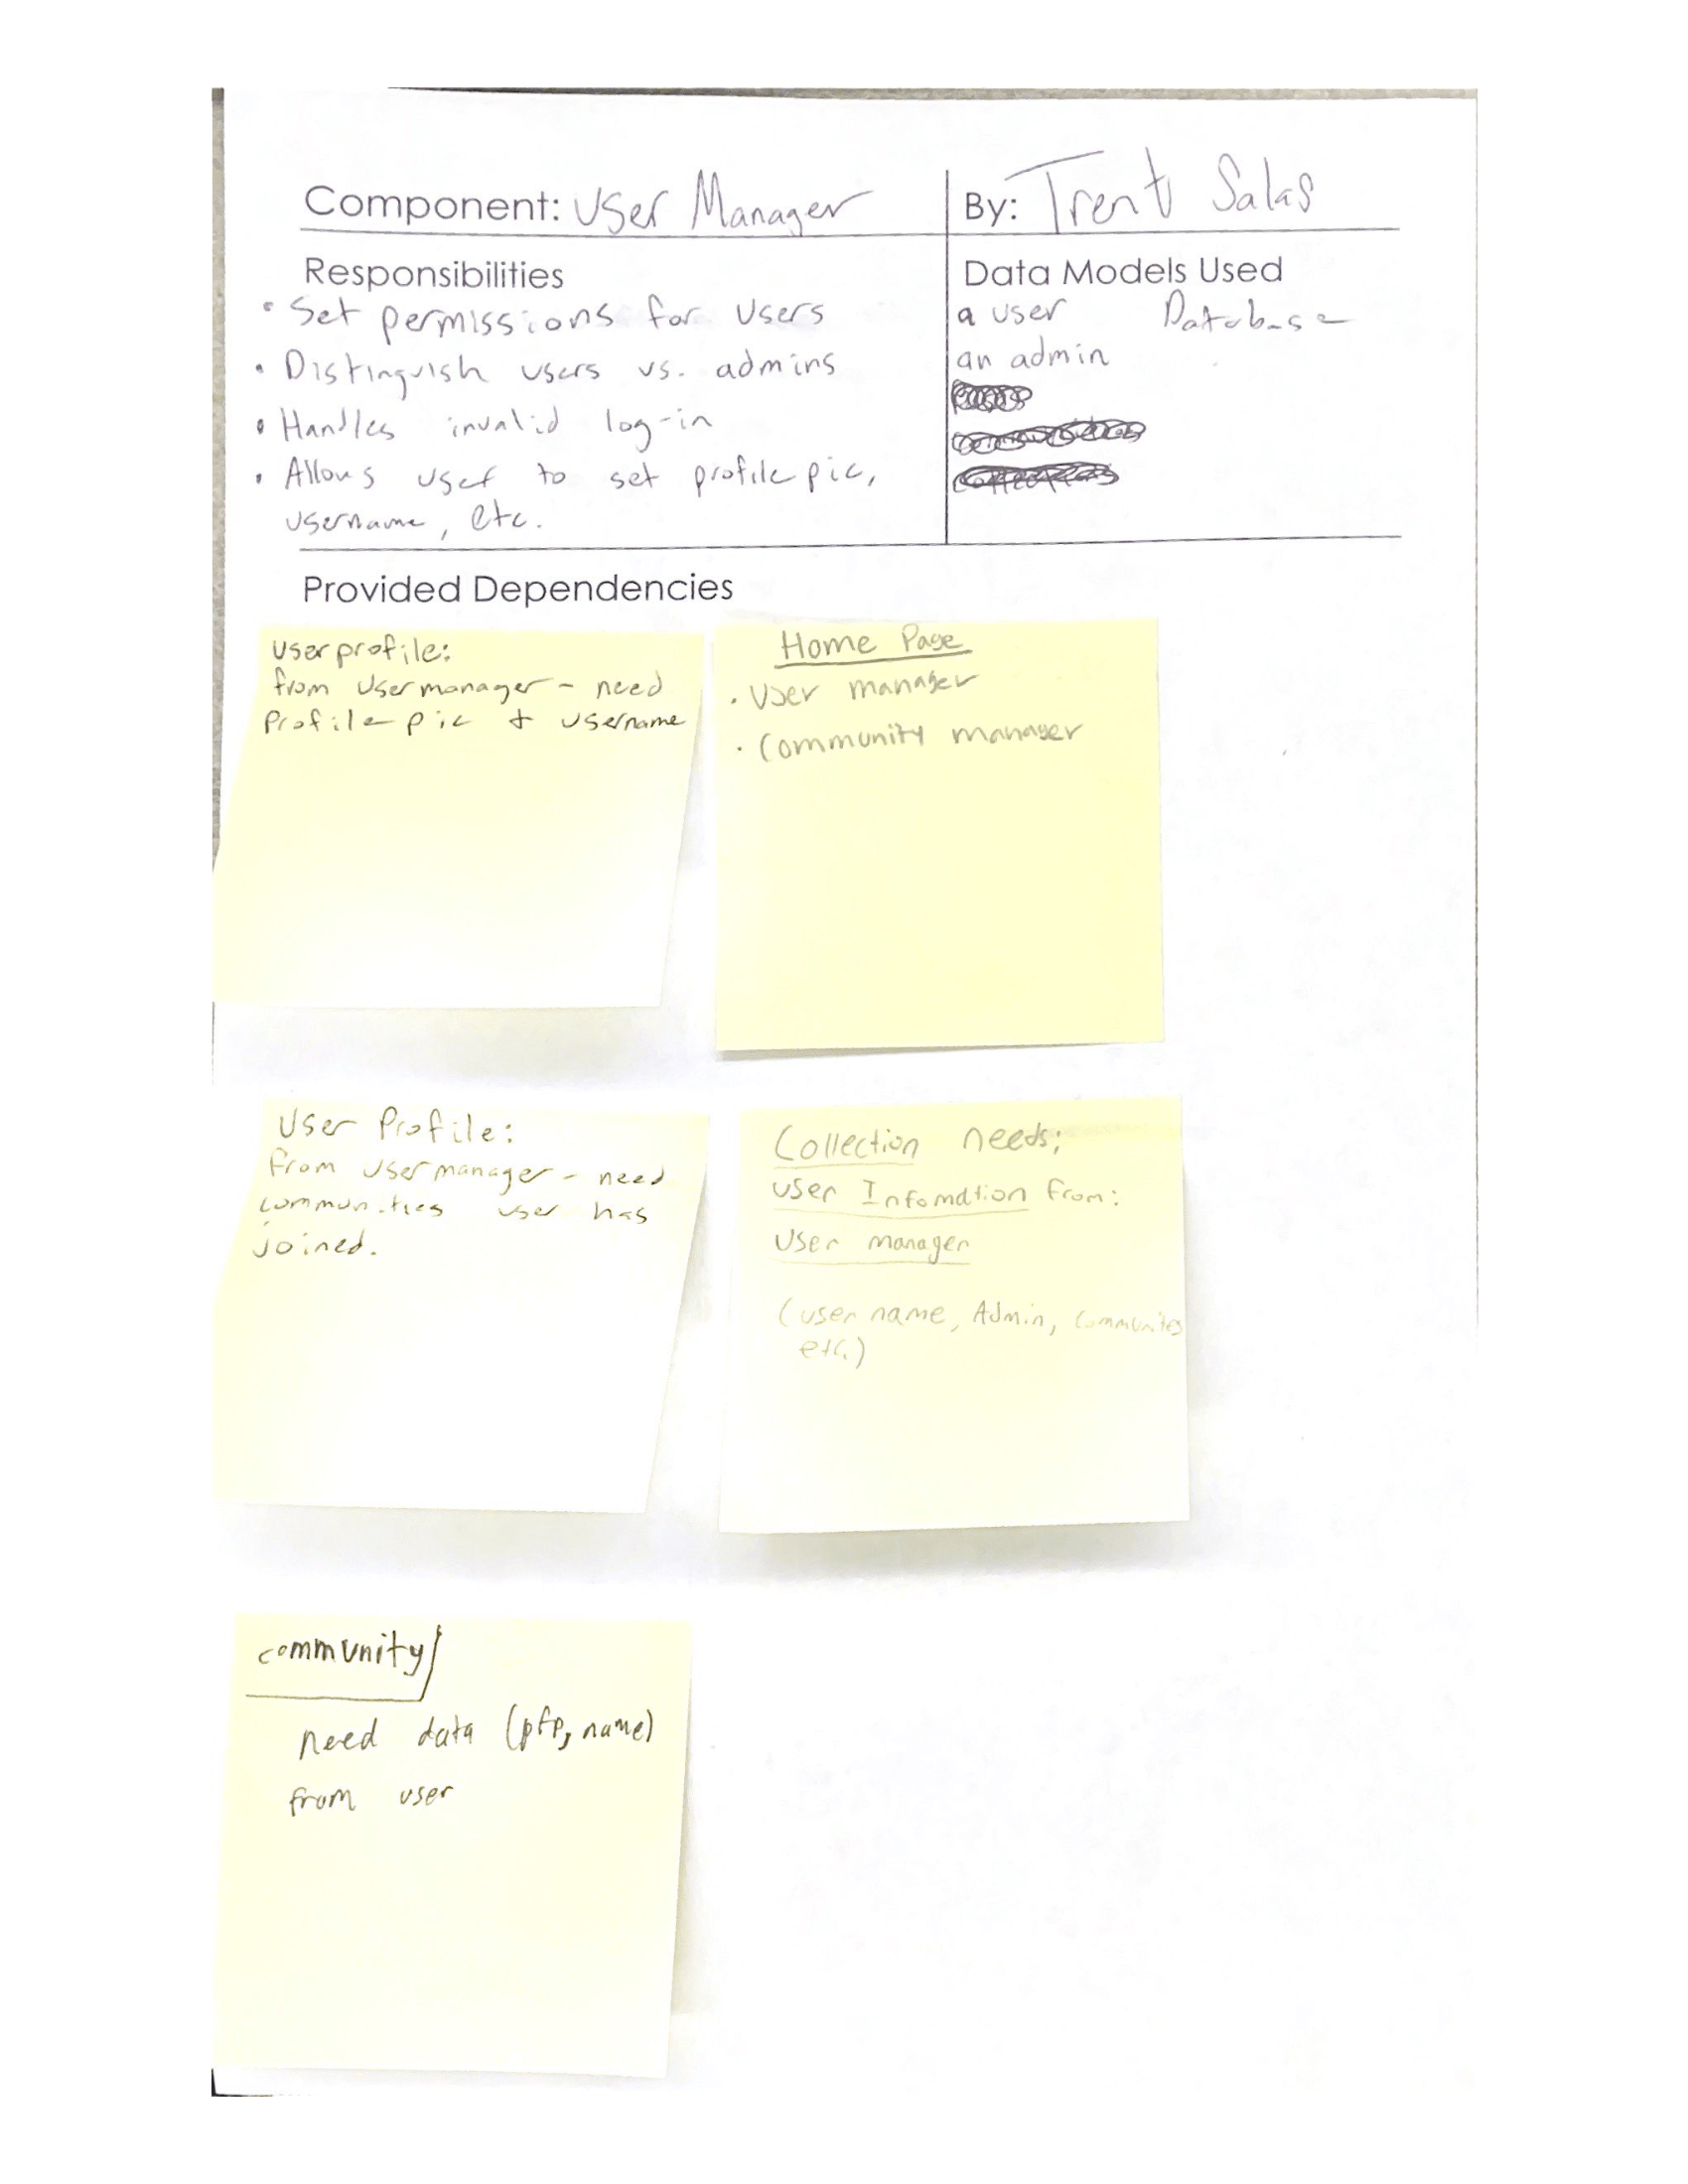 Component: User Manager
By: Trent Salas
Responsibilities
• Set permissions for users
• Distinguish users vs. admins
• Handles invalid log-in
• Allows user to set profile pic,
username, etc.
Data Models Used
a user Database
an admin
Provided Dependencies
User profile:
from User manager - need
Profile pic + username
Home Page
• User manager
• Community manager
User Profile:
From User manager - need
communities user has
joined.
Collection needs;
user Infomation from:
User manager
(user name, Admin, Communites
etc.)
community
need data (pfp, name)
from user